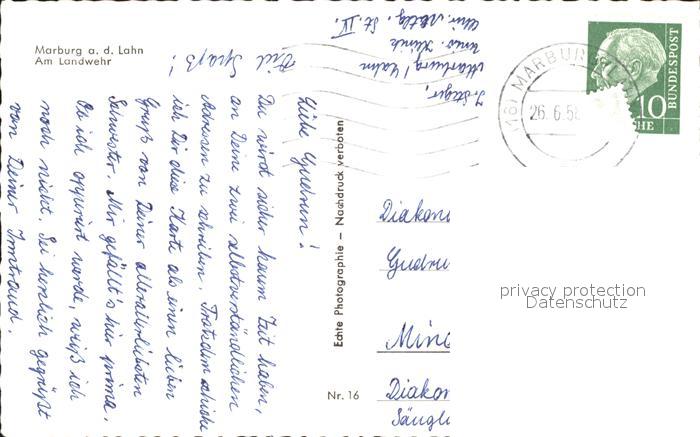 Marburg a. d. Lahn
Am Landwehr
Viel Spaß!
Liebe Gudrun!
Du wirst sicher kaum Zeit haben,
an Deine zwei selbstverständlichen
Adressen zu schreiben. Trotzdem schicke
ich Dir diese Karte als einen lieben
Gruß von Deiner allerallerliebsten
Schwester. Mir gefällt's hier prima.
Ob ich operiert werde, weiß ich
noch nicht. Sei herzlich gegrüßt
von Deiner Irmtraud.
Marburg/Lahn
Univ. Klinik
St. IV.
Echte Photographie – Nachdruck verboten
Nr. 16
MARBURG
26.6.58
BUNDESPOST
10
Diakon
Gudru
Min
Diakon
Säugl
privacy protection
Datenschutz